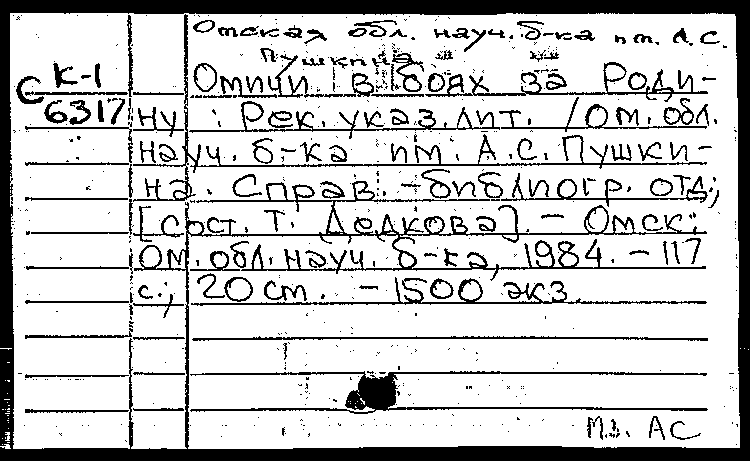 Омская обл. науч. б-ка им. А.С.
Пушкина.
С К-1
6317
Омичи в боях за Роди-
ну : Рек. указ. лит. / Ом. обл.
науч. б-ка им. А.С. Пушки-
на. Справ. -библиогр. отд.;
[сост. Т. Дедкова]. - Омск:
Ом. обл. науч. б-ка, 1984. - 117
с.; 20 см. - 1500 экз.
АС